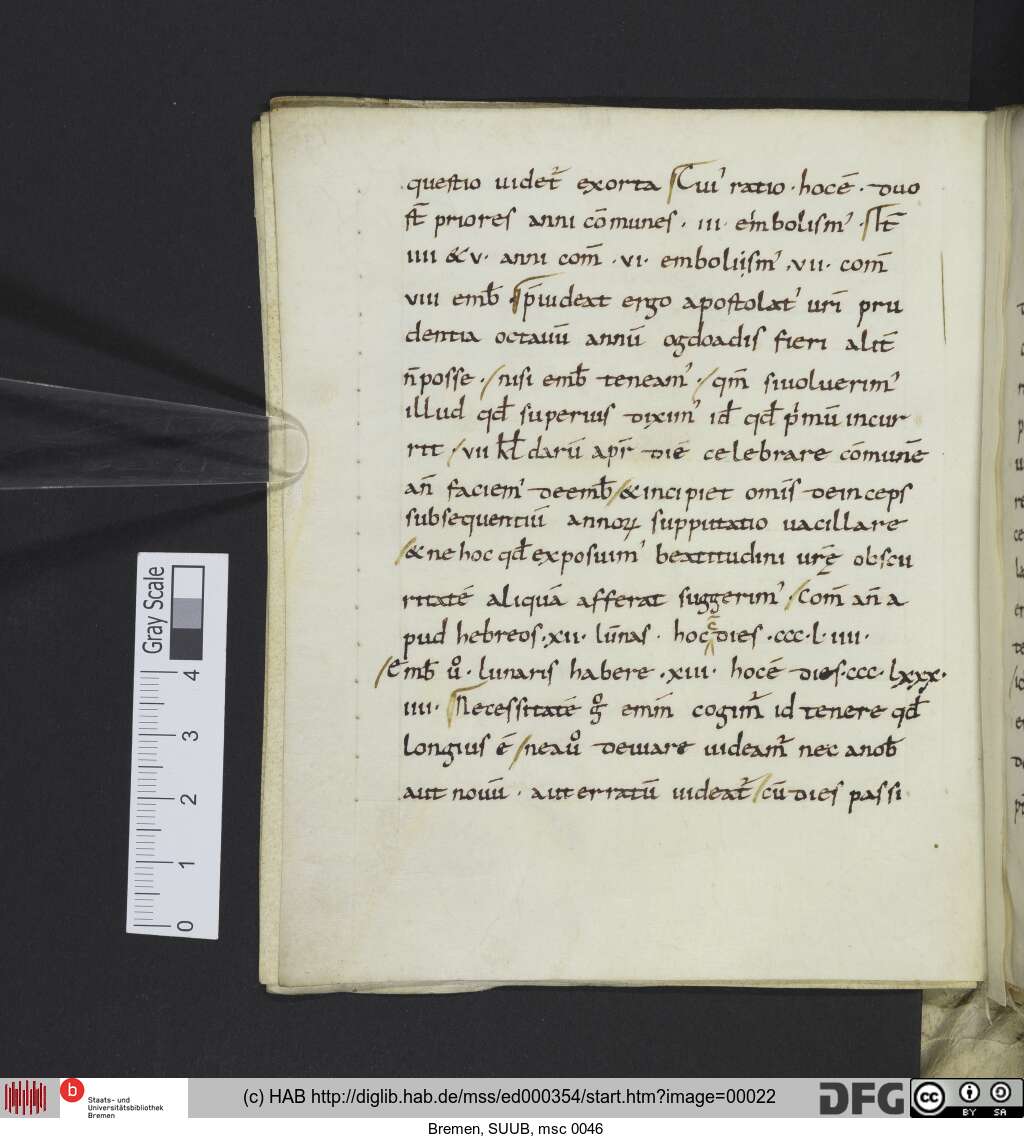 questio uidet᷑ exorta Cui᾽ ratio · hoc ē · duo
st̄ priores anni cōmunes · iii · embolism᾽ · It̄
iiii & v · anni com̄ · vi · embolijsm᾽ · vii · com̄
viii emb̄ Puideat ergo apostolat᾽ ur̄i pru
dentia octauū annū ogdoadis fieri alit̄
n̄ posse · nisi emb̄ teneam᾽ · qm̄ si uoluerim᾽
illud qd̄ superius dixim᾽ id̄ qd̄ p'mū incur
rit · vii kl̄ darū apr̄ diē celebrare cōmunē
an̄ faciem᾽ de emb̄ & incipiet omīs deinceps
subsequentiū annoꝝ supputatio uacillare
& ne hoc qd̄ exposuim᾽ beatitudini urę̄ obscu
ritatē aliquā afferat suggerim᾽ · Com̄ an̄ a
pud hebreos · xii · lūnas · hoc ē dies · ccc · l · iiii ·
Emb̄ uº · lunaris habere · xiii · hoc ē dies · ccc · lxxx ·
iiii · Necessitatē gº enim̄ cogim᷑ id tenere qd̄
longius ē · ne a uº deuiare uideam᷑ nec a nob̄
aut nouū · aut erratū uideat᷑ cū dies passi
Gray Scale
4
3
2
1
0
b
Staats- und
Universitätsbibliothek
Bremen
(c) HAB http://diglib.hab.de/mss/ed000354/start.htm?image=00022
DFG
cc BY SA
Bremen, SUUB, msc 0046